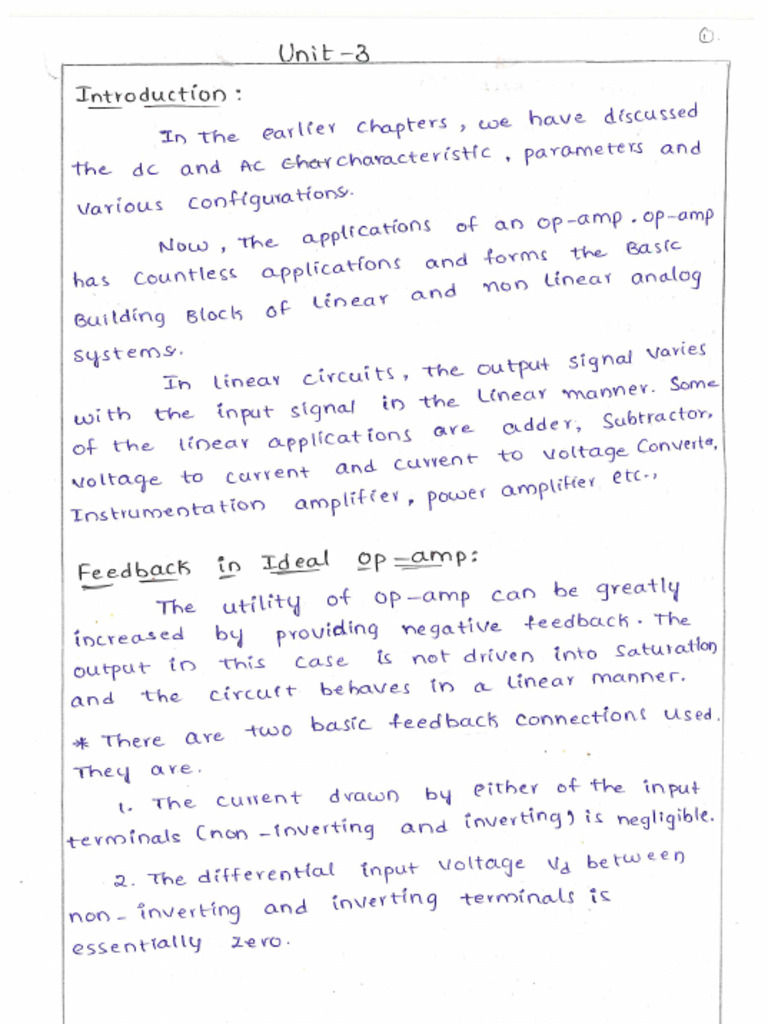 1
Unit-3
Introduction:
In the earlier chapters, we have discussed
the dc and AC characteristic, parameters and
various configurations.
Now, the applications of an op-amp. op-amp
has countless applications and forms the Basic
Building Block of linear and non linear analog
systems.
In linear circuits, the output signal varies
with the input signal in the linear manner. Some
of the linear applications are adder, Subtractor,
voltage to current and current to voltage Converte,
Instrumentation amplifier, power amplifier etc.,
Feedback in Ideal op-amp:
The utility of op-amp can be greatly
increased by providing negative feedback. The
output in this case is not driven into saturation
and the circuit behaves in a linear manner.
* There are two basic feedback connections used.
They are.
1. The current drawn by either of the input
terminals (non-inverting and inverting) is negligible.
2. The differential input voltage Vd between
non-inverting and inverting terminals is
essentially zero.